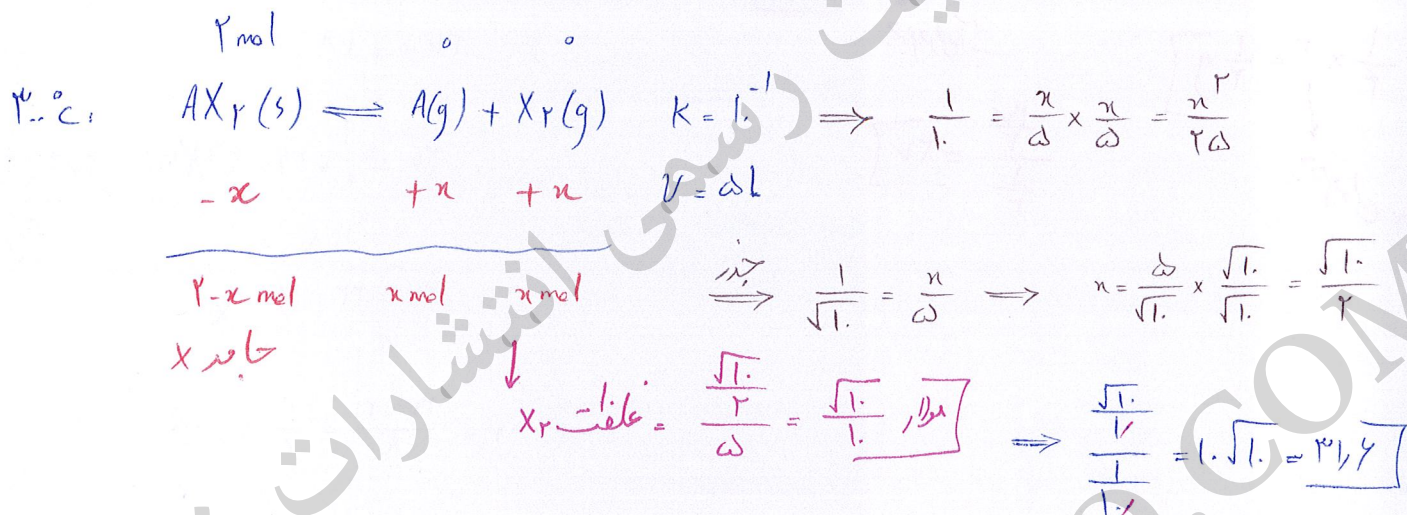 ۲ mol ۰ ۰
۳۰۰°C: AX۲(s) ⇌ A(g) + X۲(g) K = ۱۰⁻¹ ⇒ ۱/۱۰ = x/۵ × x/۵ = x^۲/۲۵
-x +x +x V = ۵L
۲-x mol x mol x mol ⇒ جذر ۱/√۱۰ = x/۵ ⇒ x = ۵/√۱۰ × √۱۰/√۱۰ = √۱۰/۲
جامد X
غلظت X۲ = (√۱۰/۲)/۵ = √۱۰/۱۰ مولار ⇒ = ۱۰√۱۰ = ۳۱,۶
رسمی انتشارات